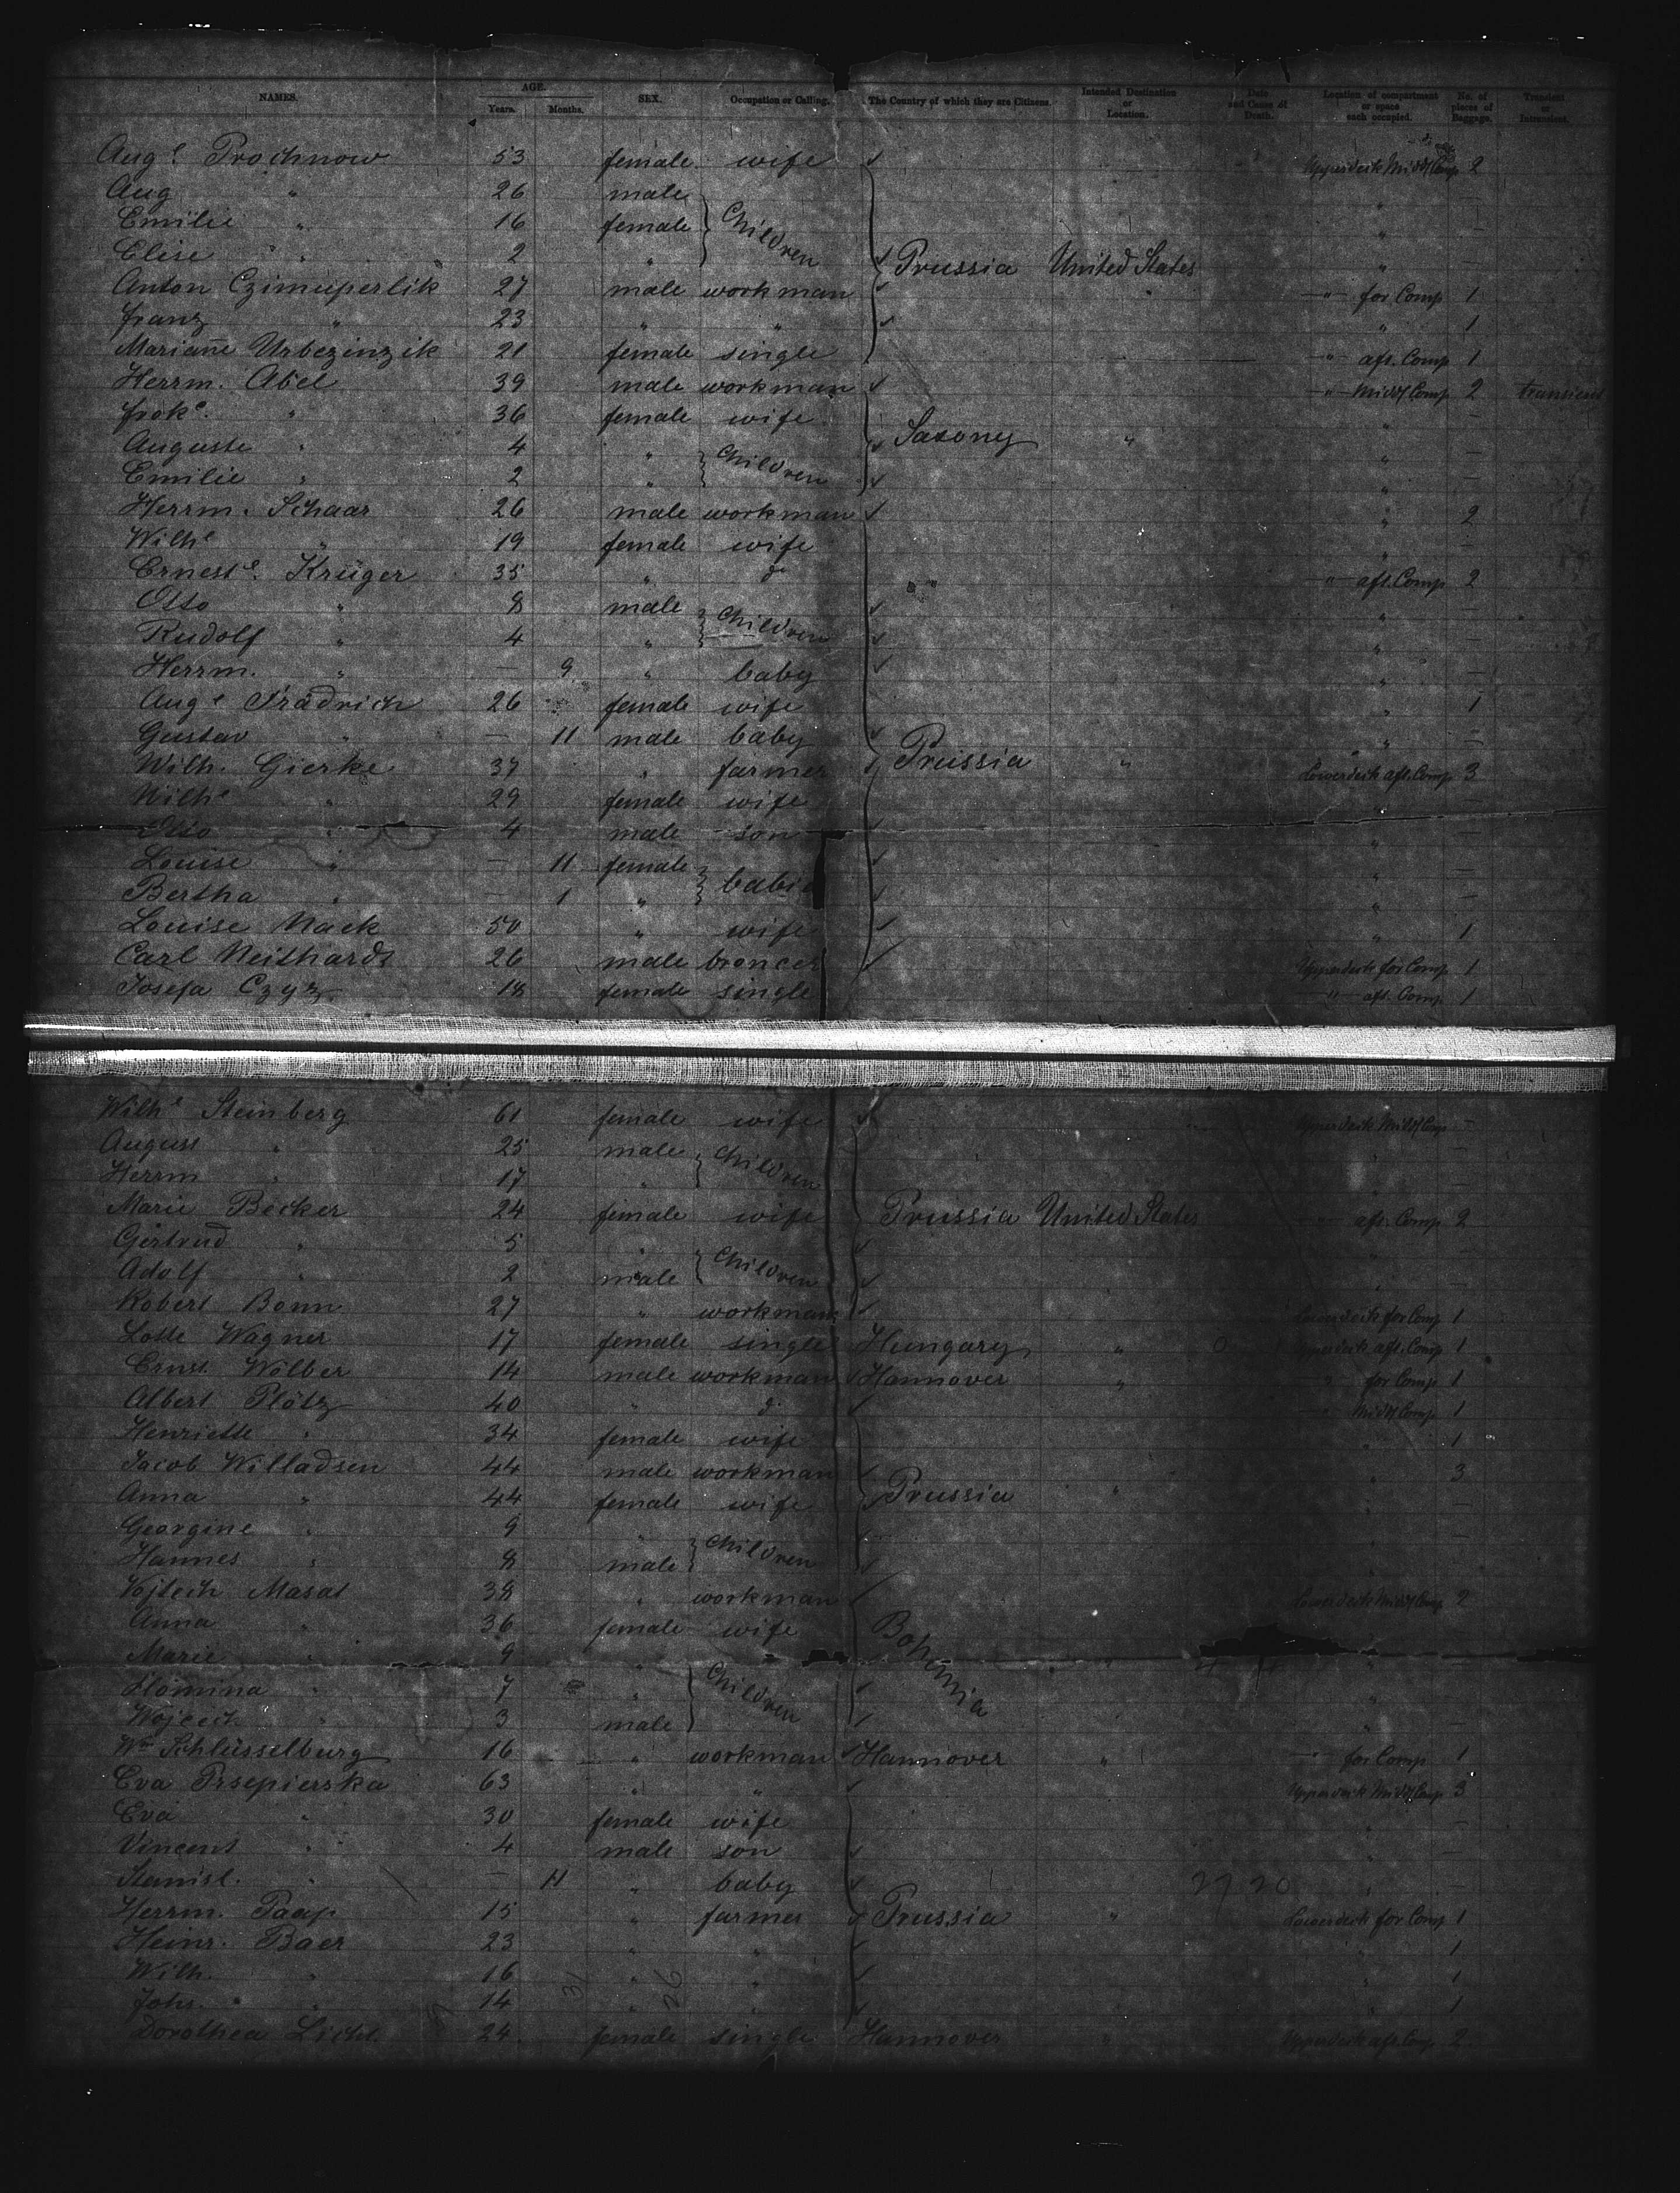 NAMES. AGE. Years. Months. SEX. Occupation or Calling. The Country of which they are Citizens. Intended Destination or Location. Date and Cause of Death. Location of compartment or space each occupied. No. of pieces of Baggage. Transient or Intransient.
Aug^e Prochnow 53 female wife Upperdeck Midd/Comp 2
Aug " 26 male " —
Emilie " 16 female Children " —
Elise " 2 " Prussia United States " —
Anton Czimuperlik 27 male workman " for Comp 1
Franz " 23 " " " 1
Marianne Urbezinzik 21 female single " aft. Comp 1
Herrm. Abel 39 male workman " Midd/Comp 2 transient
Frdk^e. " 36 female wife " —
Auguste " 4 " Children Saxony " " —
Emilie " 2 " " —
Herrm. Schaar 26 male workman " 2
Wilh^e " 19 female wife " —
Ernest^e. Krüger 35 " d^o " aft. Comp 2
Otto " 8 male Children " —
Rudolf " 4 " " —
Herrm. " — 9 " baby " —
Aug^e Fradrich 26 female wife " 1
Gustav " — 11 male baby " —
Wilh. Gierke 37 " farmer Prussia " Lowerdeck aft. Comp 3
Wilh^e " 29 female wife
Otto " 4 male son "
Louise " — 11 female " —
Bertha " — 1 " " —
Louise Mack 50 " wife " 1
Carl Neithardt 26 male broncer Upperdeck for Comp 1
Josefa Czyz 18 female single " aft. Comp 1
Wilh^e Steinberg 61 female wife Upperdeck Midd/Comp —
August " 25 male Children " —
Herrm " 17 " " —
Marie Becker 24 female wife Prussia United States " aft. Comp 2
Gertrud " 5 " Children " —
Adolf " 2 male " —
Robert Bonn 27 " workman Lowerdeck for Comp 1
Lotte Wagner 17 female single Hungary " Upperdeck aft. Comp 1
Ernst Wölber 14 male workman Hannover " " for Comp 1
Albert Plötz 40 " d^o " Midd/Comp 1
Henriette " 34 female wife " 1
Jacob Willadsen 44 male workman " 3
Anna " 44 female wife Prussia " " —
Georgine " 9 " Children " —
Hannes " 8 male " —
Vojtech Masat 38 " workman Lowerdeck Midd/Comp 2
Anna " 36 female wife Bohemia
Marie " 9 " "
" 7 " Children " —
Wojcech " 3 male " —
W^m Schlüsselburg 16 " workman Hannover " " for Comp 1
Eva Prsepierska 63 " " Upperdeck Midd/Comp 3
Eva " 30 female wife " —
Vincent " 4 male son " —
Stanisl. " — 11 " baby 27 20 " —
Herrm. Paap 15 " farmer Prussia " Lowerdeck for Comp 1
Heinr. Baer 23 " " " 1
Wilh. " 16 " " " 1
Johs. " 14 " " " 1
Dorothea Licht 24 female single Hannover " Upperdeck aft. Comp 2